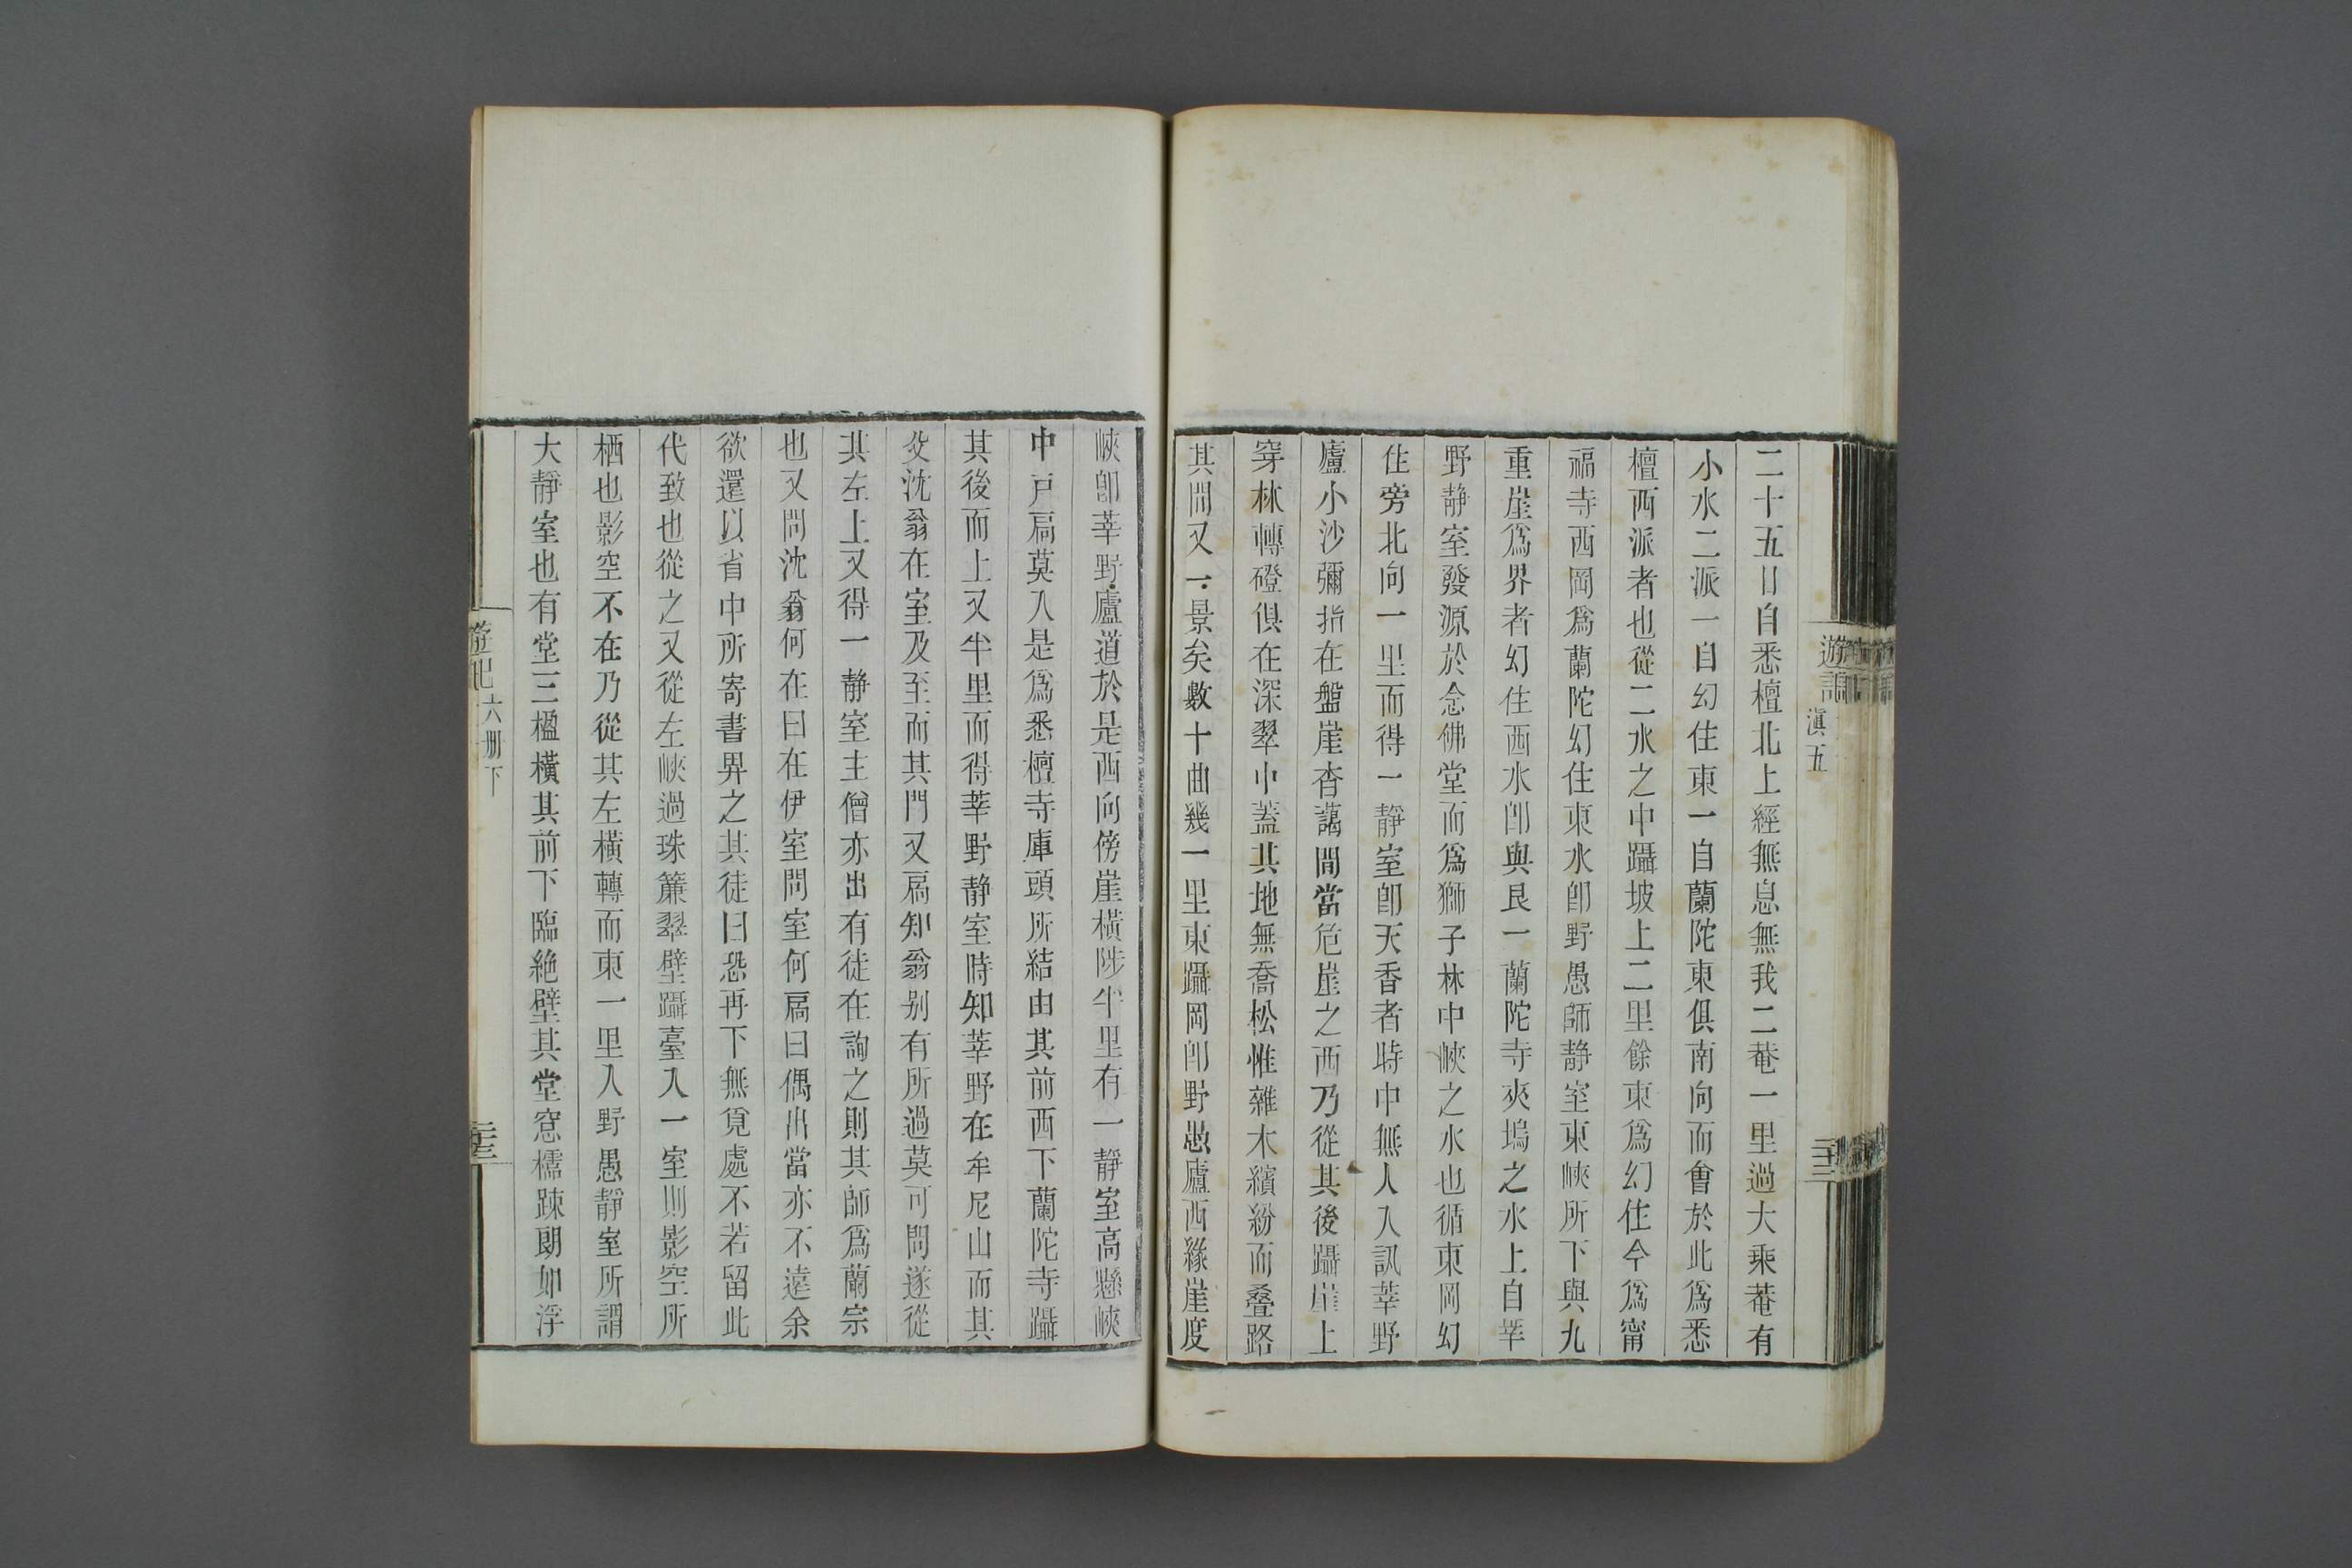 遊記
滇五
二十二
二十五日自悉檀北上經無息無我二菴一里過大乘菴有
小水二派一自幻住東一自蘭陀東俱南向而會於此爲悉
檀西派者也從二水之中躡坡上二里餘東爲幻住今爲甯
福寺西岡爲蘭陀幻住東水卽野愚師静室東峽所下與九
重崖爲界者幻住西水卽與艮一蘭陀寺夾塢之水上自莘
野静室發源於念佛堂而爲獅子林中峽之水也循東岡幻
住旁北向一里而得一靜室卽天香者時中無人入訊莘野
廬小沙彌指在盤崖杳藹間當危崖之西乃從其後躡崖上
穿林轉磴俱在深翠中蓋其地無喬松惟雜木繽紛而叠路
其間又一景矣數十曲幾一里東躡岡卽野愚廬西緣崖度
峽卽莘野廬道於是西向傍崖橫陟半里有一靜室高懸峽
中戸扃莫入是爲悉檀寺庫頭所結由其前西下蘭陀寺躡
其後而上又半里而得莘野静室時知莘野在牟尼山而其
父沈翁在室及至而其門又扃知翁别有所過莫可問遂從
其左上又得一静室主僧亦出有徒在詢之則其師爲蘭宗
也又問沈翁何在曰在伊室問室何扃曰偶出當亦不遠余
欲還以省中所寄書畀之其徒曰恐再下無覓處不若留此
代致也從之又從左峽過珠簾翠壁躡臺入一室則影空所
栖也影空不在乃從其左橫轉而東一里入野愚靜室所謂
大靜室也有堂三楹橫其前下臨絶壁其堂窓櫺疎朗如浮
遊記
六册下
二十三